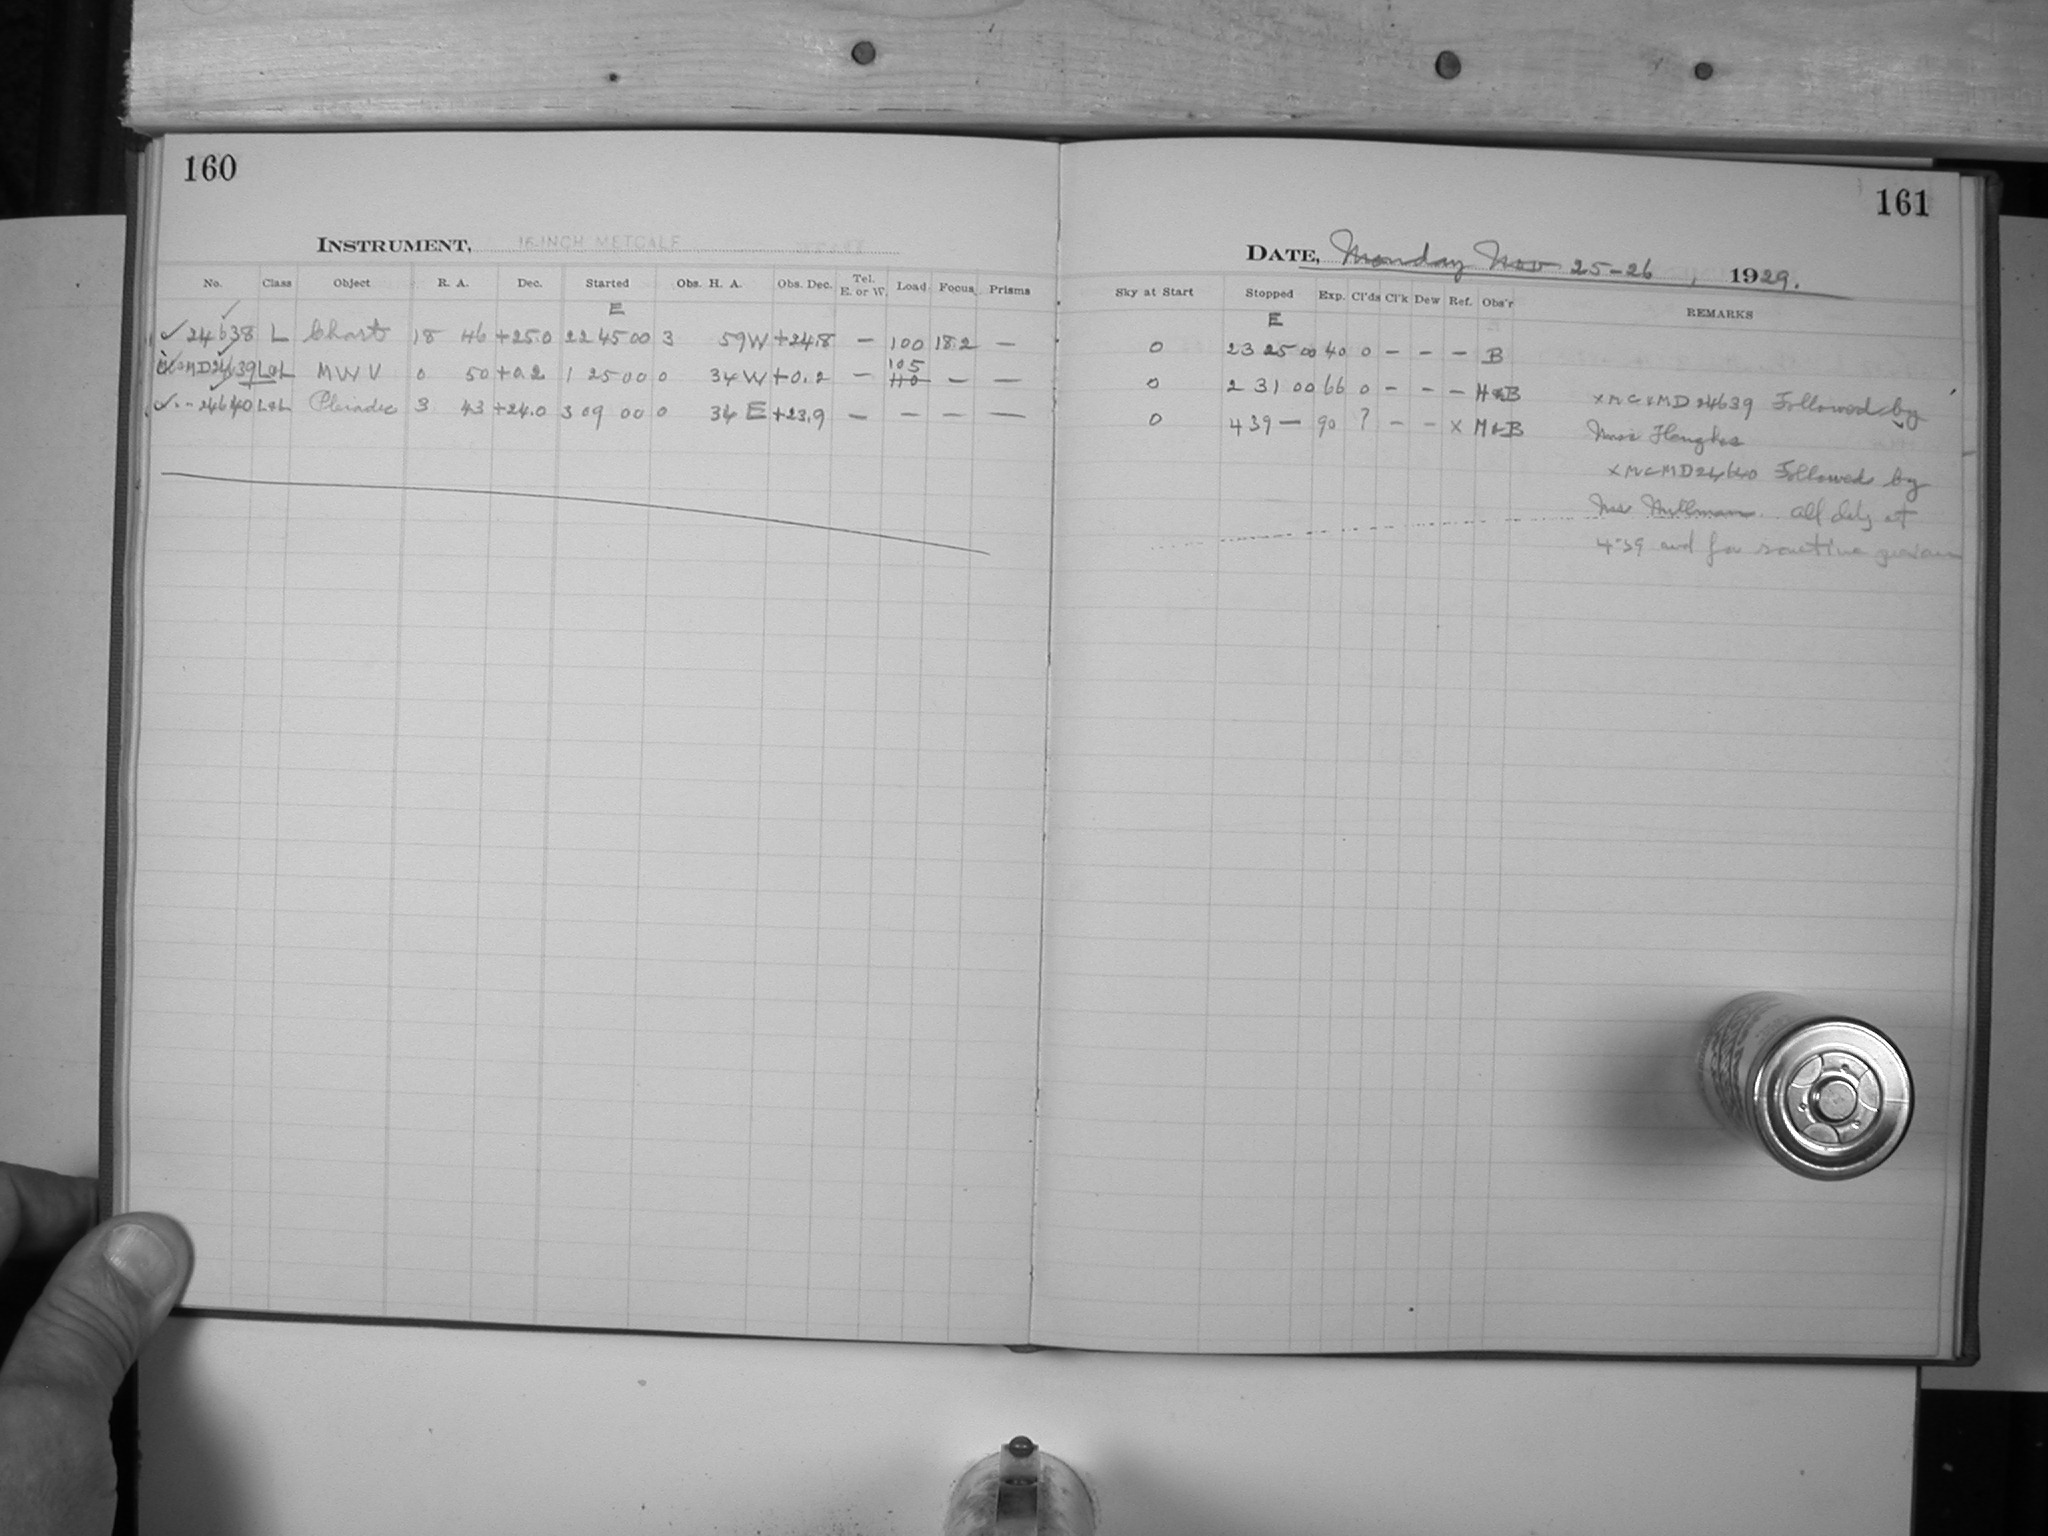 160
161
INSTRUMENT, 16-INCH METCALF
DATE, Monday Nov 25-26, 1929.
No. Class Object R. A. Dec. Started Obs. H. A. Obs. Dec. Tel. E. or W. Load Focus Prisms
Sky at Start Stopped Exp. Cl'ds Cl'k Dew Ref. Obs'r REMARKS
E
E
24638 L Chart 18 46 +25.0 22 45 00 3 59 W +24.8 — 100 18.2 —
0 23 25 00 40 0 – – – B
105
MD24639 L&L MWV 0 50 +0.2 1 25 00 0 34 W +0.2 — 110 — —
0 2 31 00 66 0 – – – H&B
24640 L&L Pleiades 3 43 +24.0 3 09 00 0 34 E +23.9 — — — —
0 4 39 — 90 ? – – x M&B
MD24639 Followed by
Miss
MD24640 Followed by
Millman. all at
4:39 and for